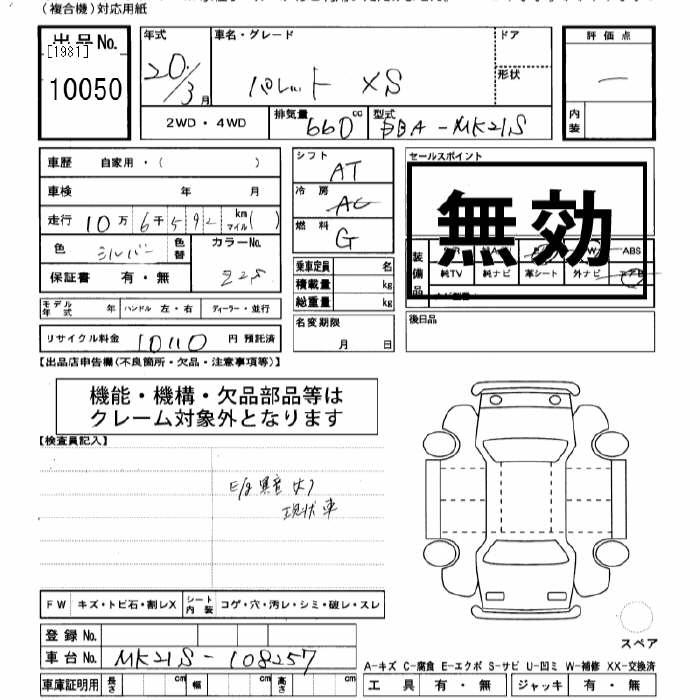 (複合機)対応用紙
出品No. [1981] 10050
年式 20/3月
車名・グレード パレット XS
ドア
形状
評価点 —
内装
2WD・4WD
排気量 660 cc
型式 DBA-MK21S
車歴 自家用・( )
車検 年 月
走行 10万 6千 5 9 2 km マイル( )
色 シルバー 色替 カラーNo. ZZS
保証書 有・無
モデル年式 年 ハンドル 左・右 ディーラー・並行
リサイクル料金 10110 円 預託済
シフト AT
冷房 AC
燃料 G
乗車定員 名
積載量 kg
総重量 kg
名変期限 月 日
セールスポイント
無効
装備品 ABS
純TV 純ナビ 革シート 外ナビ
後日品
【出品店申告欄(不良箇所・欠品・注意事項等)】
機能・機構・欠品部品等は
クレーム対象外となります
【検査員記入】
E/g異音大
現状車
FW キズ・トビ石・割レX シート内装 コゲ・穴・汚レ・シミ・破レ・スレ
登録No.
車台No. MK21S-108257
車庫証明用 長さ cm 幅 cm 高さ cm
スペア
A-キズ C-腐食 E-エクボ S-サビ U-凹ミ W-補修 XX-交換済
工具 有・無 ジャッキ 有・無